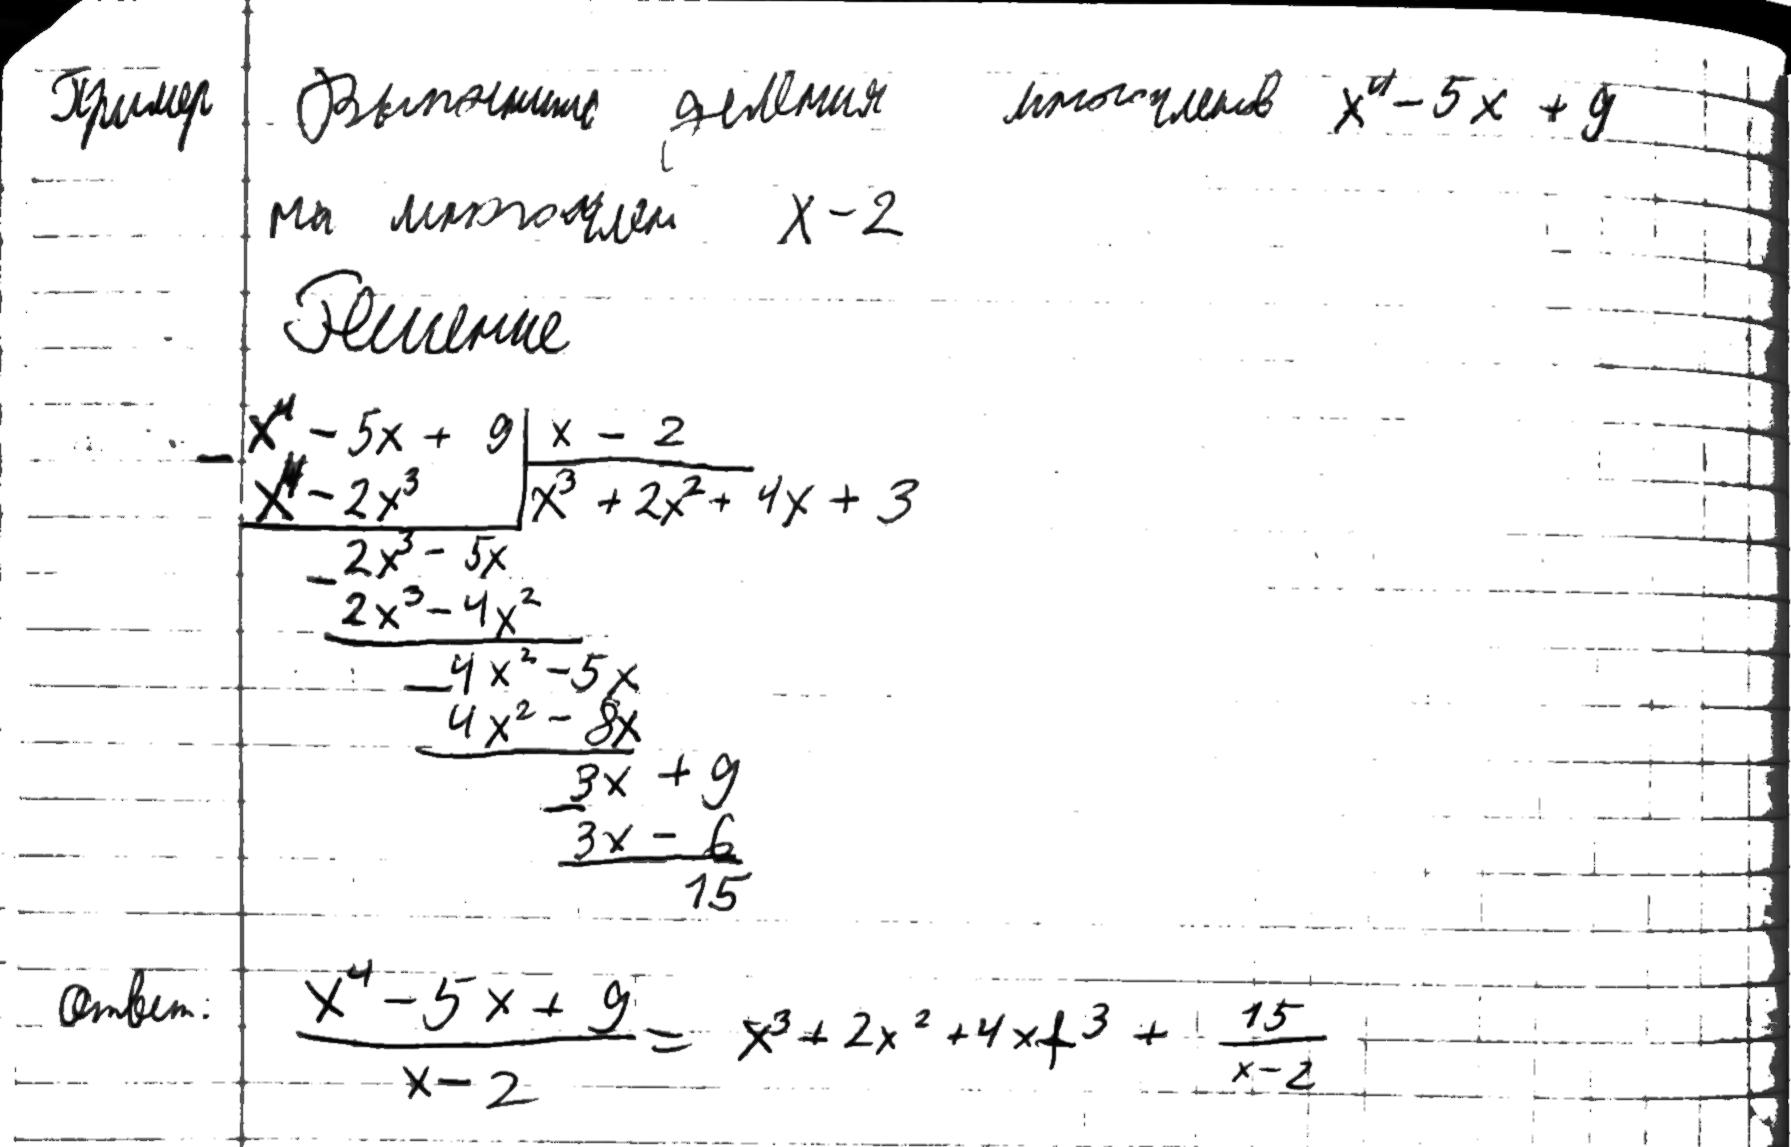 Пример Выполнить деления многочленов x⁴ - 5x + 9
на многочлен x - 2
Решение
x⁴ - 5x + 9 | x - 2
- x⁴ - 2x³ | x³ + 2x² + 4x + 3
2x³ - 5x
- 2x³ - 4x²
4x² - 5x
- 4x² - 8x
3x + 9
- 3x - 6
15
Ответ: (x⁴ - 5x + 9)/(x - 2) = x³ + 2x² + 4x + 3 + 15/(x - 2)